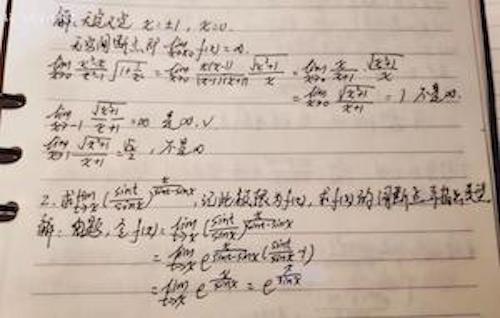 解: 无定义点 x=±1, x=0.
无穷间断点即 lim x→x₀ f(x)=∞.
lim x→0 (x²-x)/(x²-1) √(1+1/x²) = lim x→0 x(x-1)/((x-1)(x+1)) √(x²+1)/x = lim x→0 x/(x+1) · √(x²+1)/x
= lim x→0 √(x²+1)/(x+1) = 1 不是∞.
lim x→-1 √(x²+1)/(x+1) = ∞ 是∞. √
lim x→1 √(x²+1)/(x+1) = √2/2, 不是∞
2. 求 lim t→x (sint/sinx)^(x/(sint-sinx)), 记此极限为f(x), 求f(x)的间断点并指出类型
解: 由题, f(x) = lim t→x (sint/sinx)^(x/(sint-sinx))
= lim t→x e^(x/(sint-sinx) (sint/sinx - 1))
= lim t→x e^(x/sinx) = e^(x/sinx)